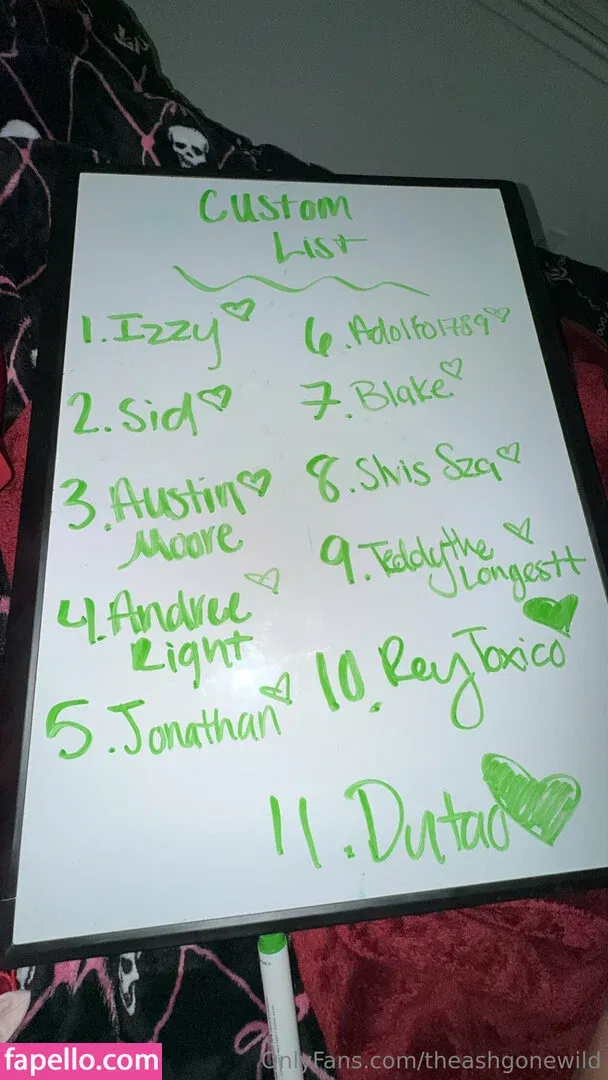 Custom
List
1. Izzy
2. Sid
3. Austin
Moore
4. Andree
Right
5. Jonathan
6. Adolfo1789
7. Blake
8. Slvis Sza
9. Teddythe
Longestt
10. Rey Toxico
11. Dutao
fapello.com
OnlyFans.com/theashgonewild